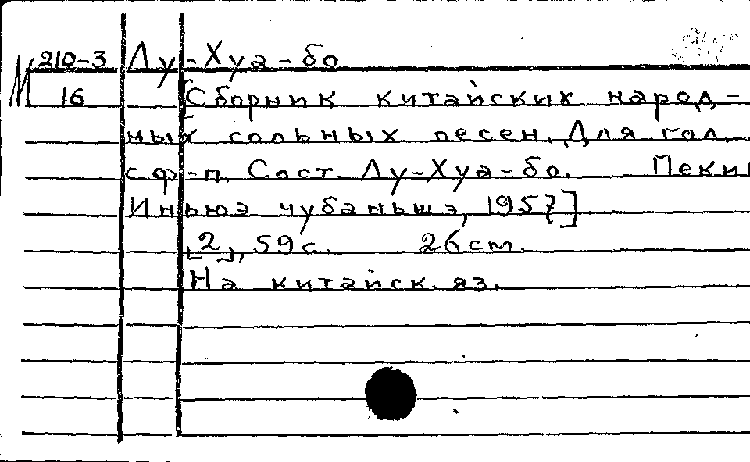 М 210-3 Лу-Хуа-бо
16 [Сборник китайских народ-
ных сольных песен. Для гол.
с ф-п. Сост. Лу-Хуа-бо. Пекин
Иньюэ чубаньшэ, 1957]
[2], 59 с. 26 см.
На китайск. яз.